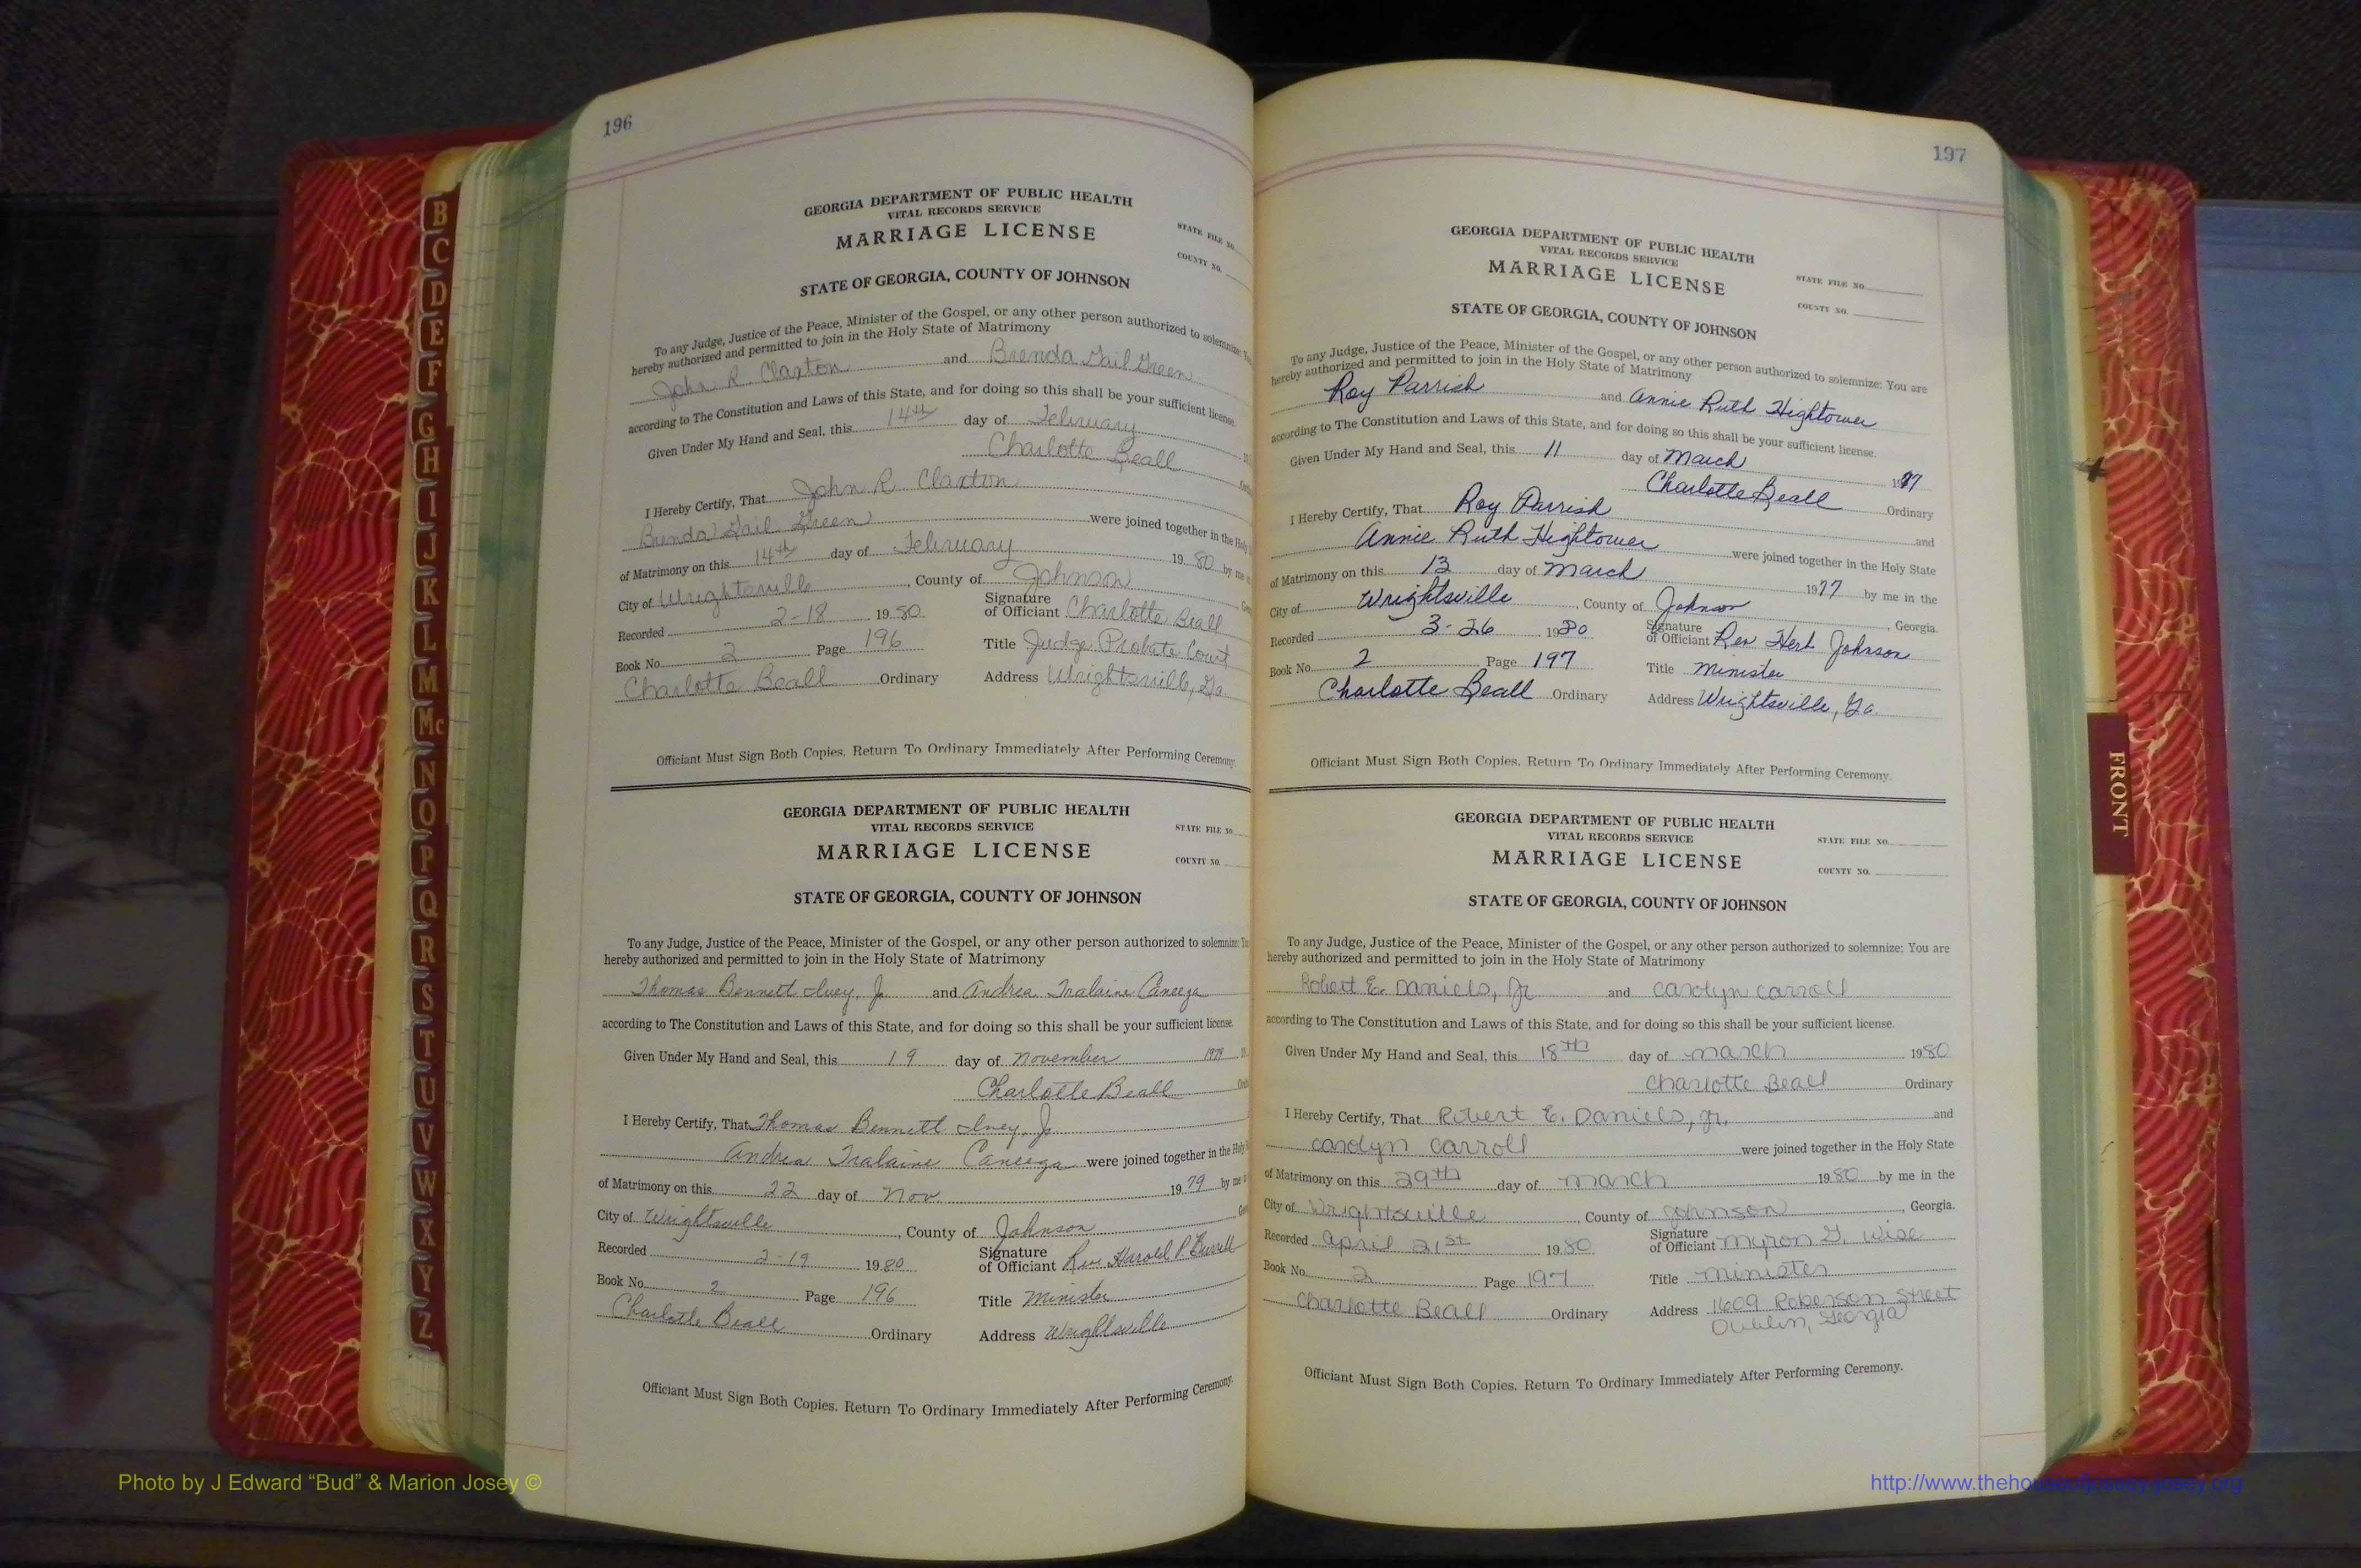 196
GEORGIA DEPARTMENT OF PUBLIC HEALTH
VITAL RECORDS SERVICE
MARRIAGE LICENSE
STATE FILE NO.
COUNTY NO.
STATE OF GEORGIA, COUNTY OF JOHNSON
To any Judge, Justice of the Peace, Minister of the Gospel, or any other person authorized to solemnize:
hereby authorized and permitted to join in the Holy State of Matrimony
John R. Claxton and Brenda Gail Green
according to The Constitution and Laws of this State, and for doing so this shall be your sufficient license.
Given Under My Hand and Seal, this 14th day of February
Charlotte Beall
I Hereby Certify, That John R Claxton
Brenda Gail Green were joined together in the Holy
of Matrimony on this 14th day of February 1980 by me
City of Wrightsville, County of Johnson
Recorded 2-18 1980 Signature of Officiant Charlotte Beall
Book No. 2 Page 196 Title Judge Probate Court
Charlotte Beall Ordinary Address Wrightsville, Ga
Officiant Must Sign Both Copies. Return To Ordinary Immediately After Performing Ceremony.
GEORGIA DEPARTMENT OF PUBLIC HEALTH
VITAL RECORDS SERVICE
MARRIAGE LICENSE
STATE FILE NO.
COUNTY NO.
STATE OF GEORGIA, COUNTY OF JOHNSON
To any Judge, Justice of the Peace, Minister of the Gospel, or any other person authorized to solemnize:
hereby authorized and permitted to join in the Holy State of Matrimony
Thomas Bennett Ivey, Jr and Andrea Tralaine Caneega
according to The Constitution and Laws of this State, and for doing so this shall be your sufficient license.
Given Under My Hand and Seal, this 19 day of November 1979
Charlotte Beall
I Hereby Certify, That Thomas Bennett Ivey, Jr
Andrea Tralaine Caneega were joined together in the Holy
of Matrimony on this 22 day of Nov 1979 by me
City of Wrightsville, County of Johnson
Recorded 2-19 1980 Signature of Officiant Rev Harold P.
Book No. 2 Page 196 Title Minister
Charlotte Beall Ordinary Address Wrightsville
Officiant Must Sign Both Copies. Return To Ordinary Immediately After Performing Ceremony.
197
GEORGIA DEPARTMENT OF PUBLIC HEALTH
VITAL RECORDS SERVICE
MARRIAGE LICENSE
STATE FILE NO.
COUNTY NO.
STATE OF GEORGIA, COUNTY OF JOHNSON
To any Judge, Justice of the Peace, Minister of the Gospel, or any other person authorized to solemnize: You are
hereby authorized and permitted to join in the Holy State of Matrimony
Roy Parrish and Annie Ruth Hightower
according to The Constitution and Laws of this State, and for doing so this shall be your sufficient license.
Given Under My Hand and Seal, this 11 day of March 1977
Charlotte Beall Ordinary
I Hereby Certify, That Roy Parrish and
Annie Ruth Hightower were joined together in the Holy State
of Matrimony on this 13 day of March 1977 by me in the
City of Wrightsville, County of Johnson, Georgia.
Recorded 3-26 1980 Signature of Officiant Rev Herb Johnson
Book No. 2 Page 197 Title Minister
Charlotte Beall Ordinary Address Wrightsville, Ga.
Officiant Must Sign Both Copies. Return To Ordinary Immediately After Performing Ceremony.
GEORGIA DEPARTMENT OF PUBLIC HEALTH
VITAL RECORDS SERVICE
MARRIAGE LICENSE
STATE FILE NO.
COUNTY NO.
STATE OF GEORGIA, COUNTY OF JOHNSON
To any Judge, Justice of the Peace, Minister of the Gospel, or any other person authorized to solemnize: You are
hereby authorized and permitted to join in the Holy State of Matrimony
Robert E. Daniels, Jr and Carolyn Carroll
according to The Constitution and Laws of this State, and for doing so this shall be your sufficient license.
Given Under My Hand and Seal, this 18th day of March 1980
Charlotte Beall Ordinary
I Hereby Certify, That Robert E. Daniels, Jr. and
Carolyn Carroll were joined together in the Holy State
of Matrimony on this 29th day of March 1980 by me in the
City of Wrightsville, County of Johnson, Georgia.
Recorded April 21st 1980 Signature of Officiant Myron G. Wise
Book No. 2 Page 197 Title Minister
Charlotte Beall Ordinary Address 1609 Roberson Street
Dublin, Georgia
Officiant Must Sign Both Copies. Return To Ordinary Immediately After Performing Ceremony.
B
C
D
E
F
G
H
I
J
K
L
M
Mc
N
O
P
Q
R
S
T
U
V
W
X
Y
Z
FRONT
Photo by J Edward “Bud” & Marion Josey ©
http://www.thehouseofjossey-josey.org